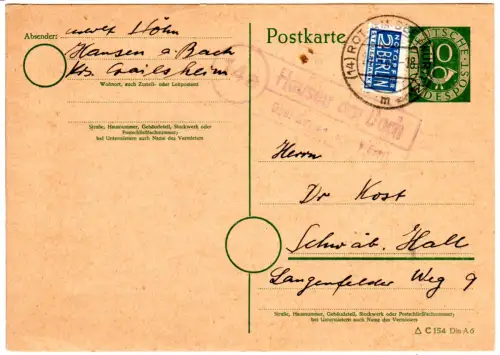 Absender:
Hausen a. Bach
Krs Crailsheim
Wohnort, auch Zustell- oder Leitpostamt
Straße, Hausnummer, Gebäudeteil, Stockwerk oder
Postschließfachnummer;
bei Untermietern auch Name des Vermieters
Postkarte
NOTOPFER
2 BERLIN
STEUERMARKE
DEUTSCHE
10
BUNDESPOST
(14) ROT
14a
Hausen am Bach
Herrn
Dr Kost
Schwäb. Hall
Langenfelder Weg 9
Straße, Hausnummer, Gebäudeteil, Stockwerk oder Postschließfachnummer;
bei Untermietern auch Name des Vermieters
△ C 154 Din A 6